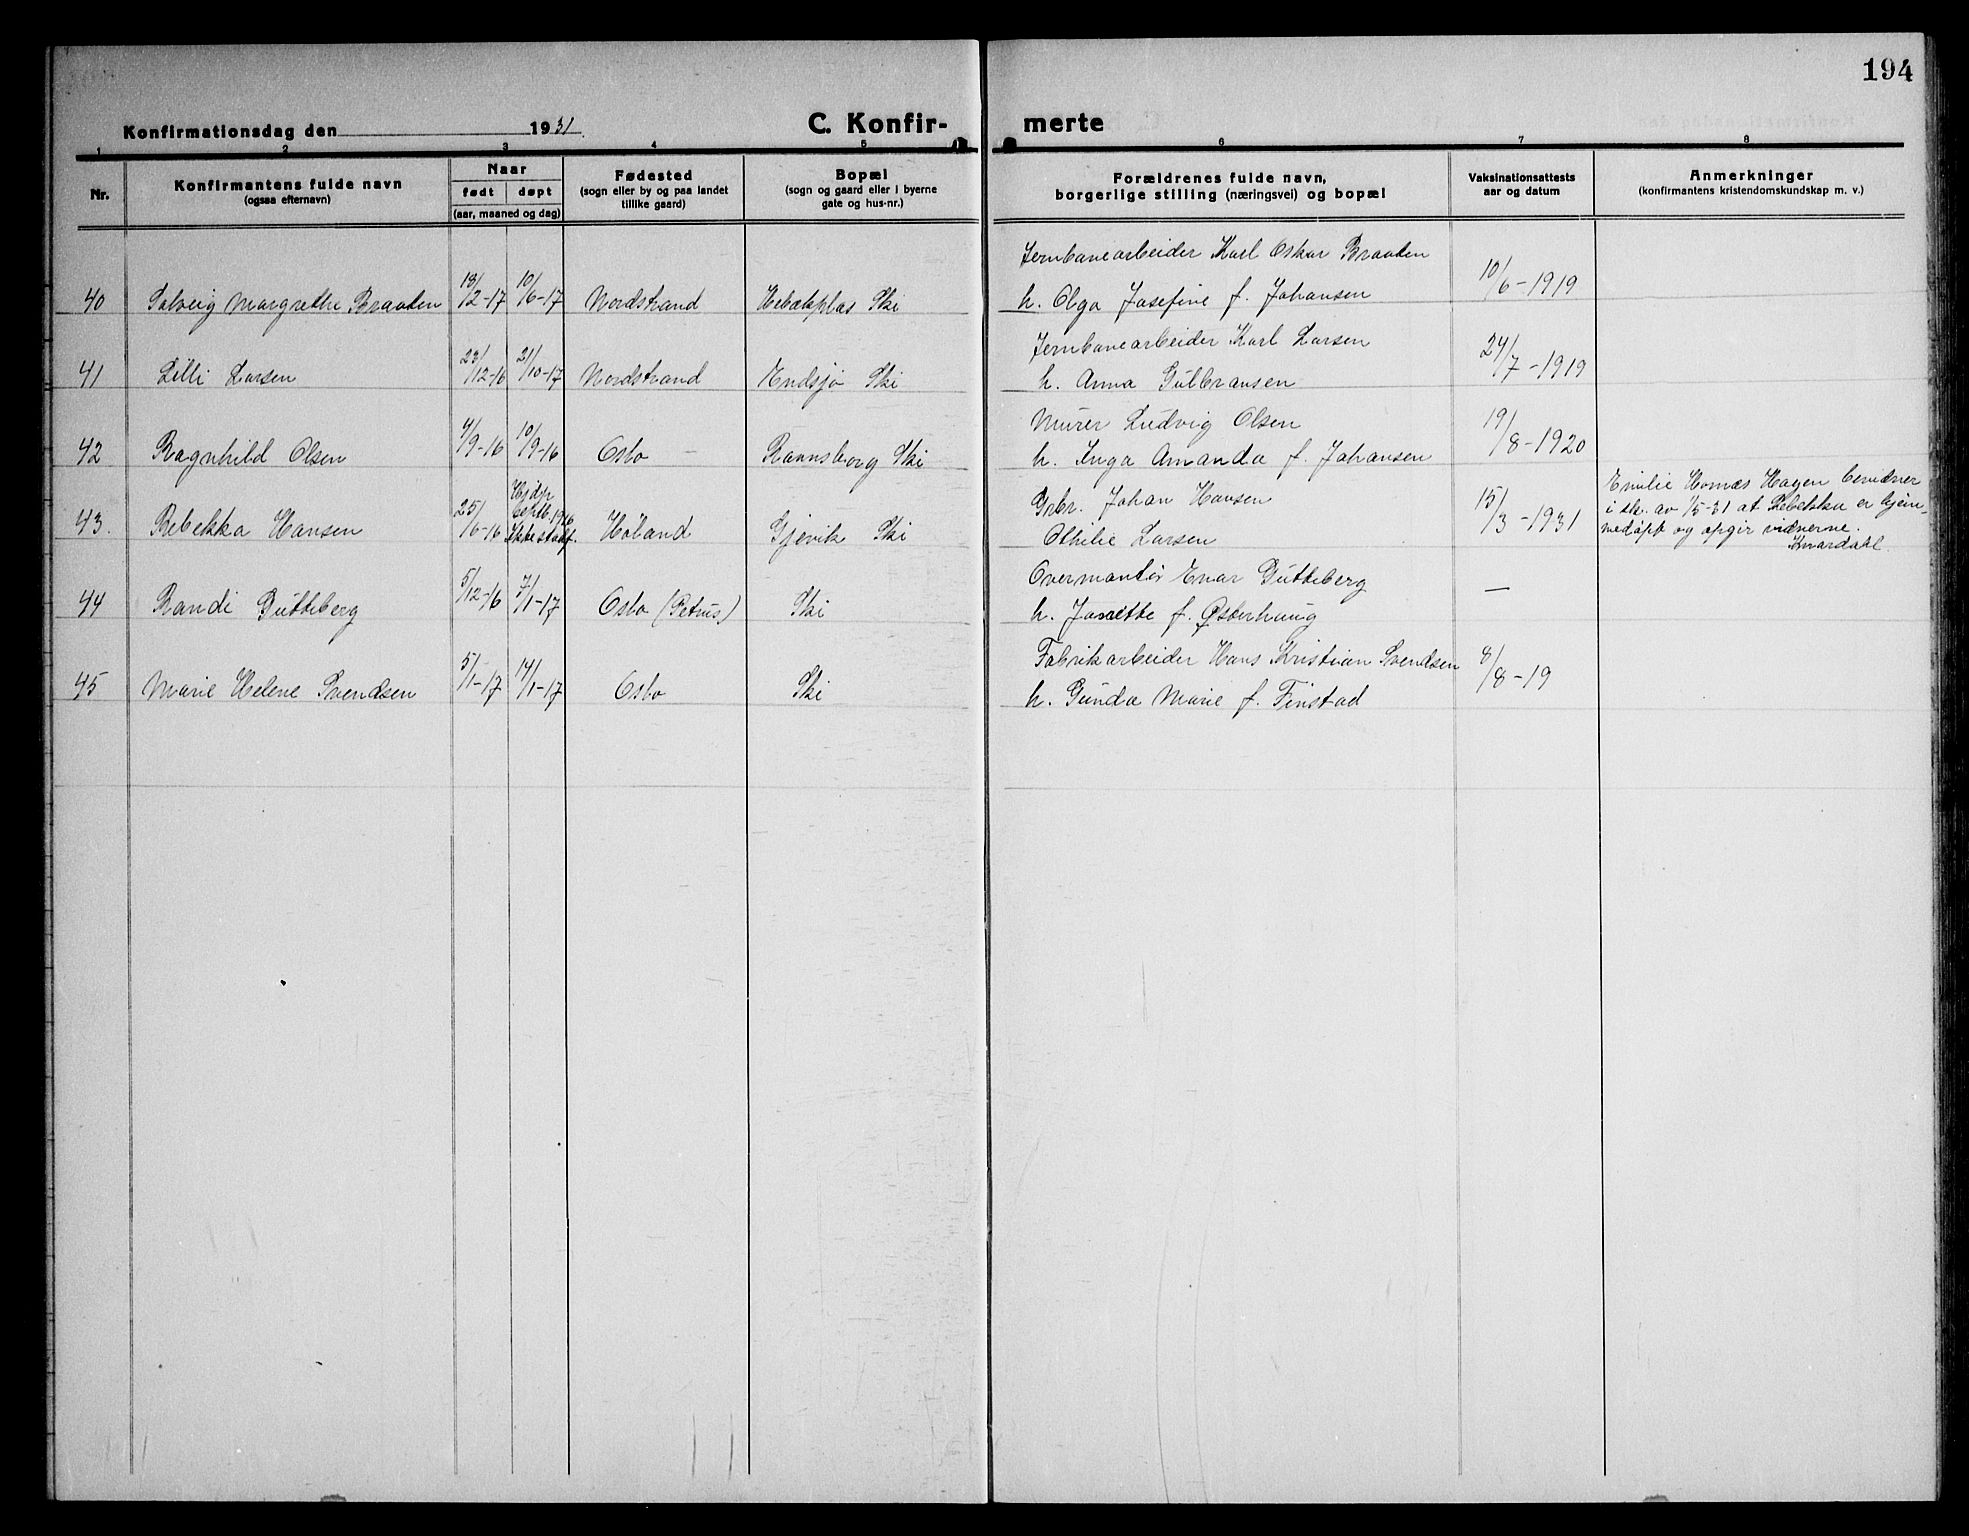 194
Konfirmationsdag den 1931. C. Konfir- merte
1 2 3 4 5 6 7 8
Nr.
Konfirmantens fulde navn
(ogsaa efternavn)
Naar
født døpt
(aar, maaned og dag)
Fødested
(sogn eller by og paa landet
tillike gaard)
Bopæl
(sogn og gaard eller i byerne
gate og hus-nr.)
Forældrenes fulde navn,
borgerlige stilling (næringsvei) og bopæl
Vaksinationsattests
aar og datum
Anmerkninger
(konfirmantens kristendomskundskap m. v.)
Jernbanearbeider Karl Oskar Braaten
40 Solveig Margrethe Braaten 18/2-17 10/6-17 Nordstrand Ski
h. Olga Josefine f. Johansen 10/6-1919
Jernbanearbeider Karl Larsen
41 Lilli Larsen 23/12-16 21/10-17 Nordstrand Endsjø Ski
h. Anna Gulbransen 24/7-1919
Murer Ludvig Olsen
42 Ragnhild Olsen 4/9-16 10/9-16 Oslo - Ravnsborg Ski
h. Inga Amanda f. Johansen 19/8-1920
Hjdp
Septb. 1916
Ikke stadf.
43. Rebekka Hansen 25/6-16 Høland Gjevik Ski
Grbr. Johan Hansen
Othilie Larsen 15/3-1931
Emilie Hornæs Hagen bevidner
i skr. av 1/5-31 at Rebekka er hjem-
medøpt og opgir vidnerne.
Knardahl
Overmontør Enar Gutteberg
44 Randi Gutteberg 5/12-16 7/1-17 Oslo (Petrus.) Ski
h. Janette f. Østerhaug —
Fabrikarbeider Hans Kristian Svendsen
45 Marie Helene Svendsen 5/1-17 14/1-17 Oslo Ski
h. Gunda Marie f. Finstad 8/8-19